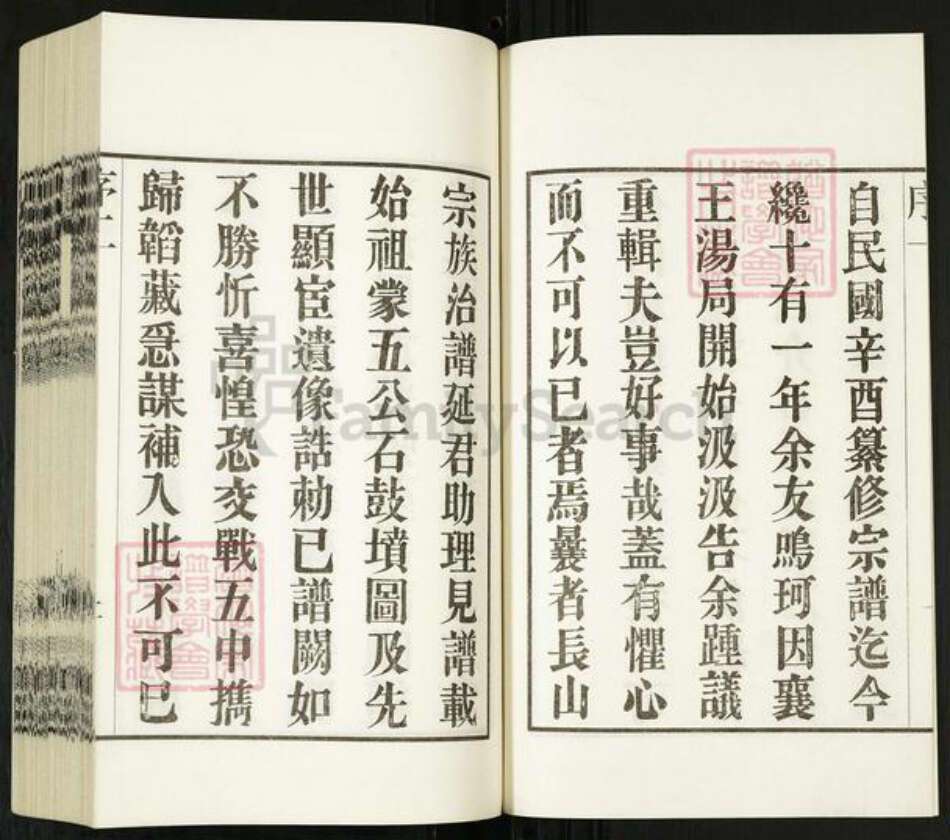 序
自民國辛酉纂修宗譜迄今
纔十有一年余友鳴珂因襄
王湯局開始汲汲告余踵議
重輯夫豈好事哉蓋有懼心
而不可以已者焉曩者長山
宗族治譜延君助理見譜載
始祖蒙五公石鼓墳圖及先
世顯宦遺像誥勅已譜闕如
不勝忻喜惶恐交戰五中擕
歸韜藏亟謀補入此不可已
序
FamilySearch